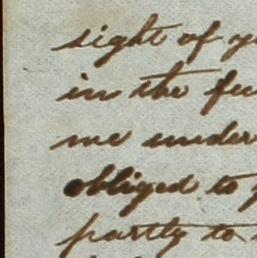 sight of
in the
me under
obliged to
partly to